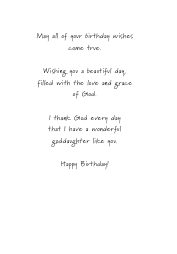 May all of your birthday wishes
come true.
Wishing you a beautiful day,
filled with the love and grace
of God.
I thank God every day
that I have a wonderful
goddaughter like you.
Happy Birthday!